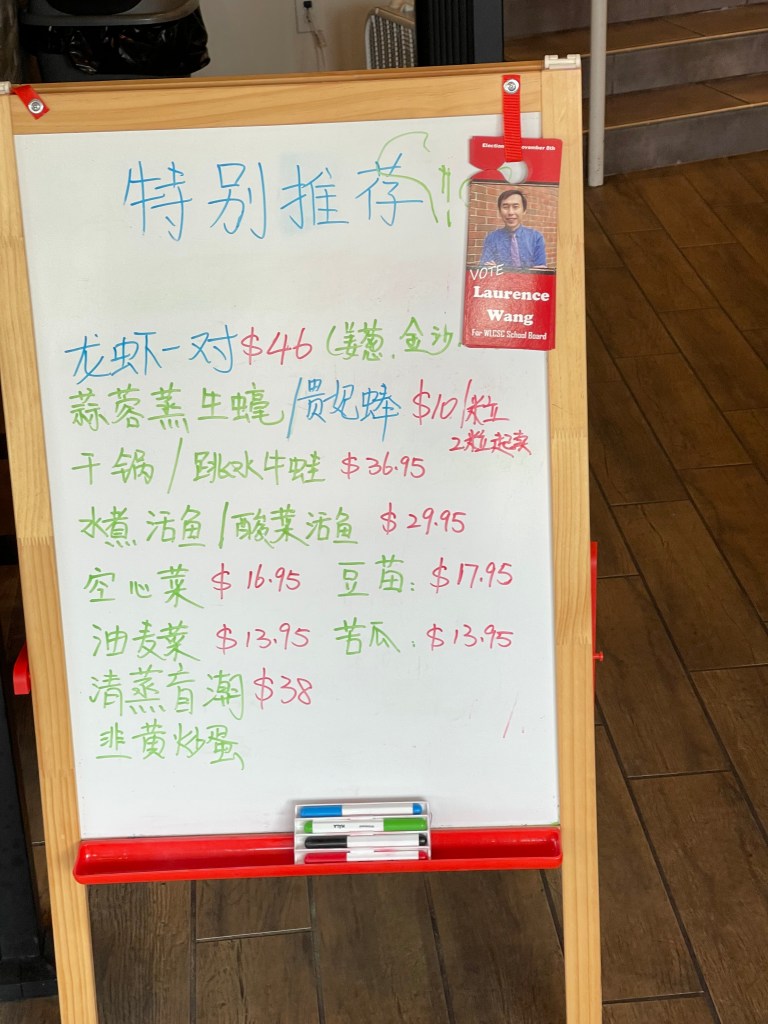 特别推荐!!
Election November 8th
VOTE
Laurence
Wang
For WLCSC School Board
龙虾一对 $46 (姜葱、金沙
蒜蓉蒸生蠔/贵妃蚌 $10/粒
2粒起卖
干锅/跳水牛蛙 $36.95
水煮活鱼/酸菜活鱼 $29.95
空心菜 $16.95 豆苗: $17.95
油麦菜 $13.95 苦瓜: $13.95
清蒸盲潮 $38
韭黄炒蛋